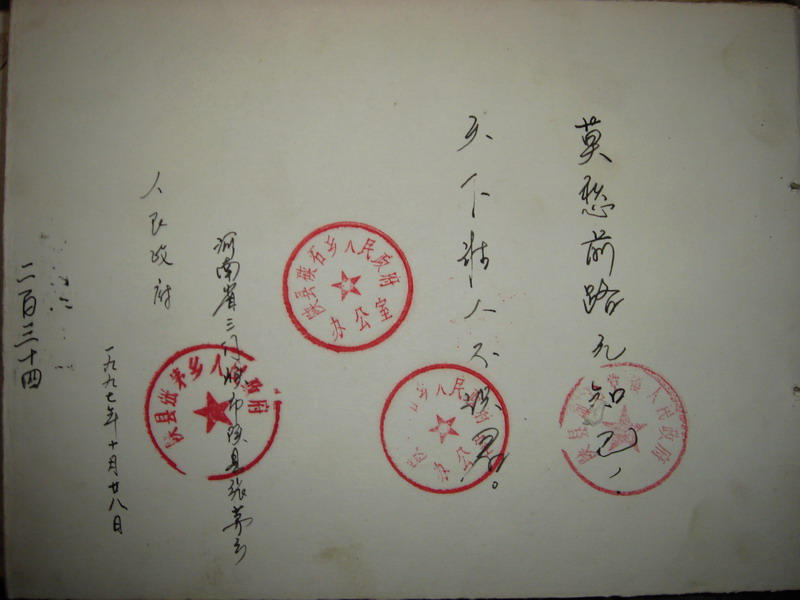 莫愁前路无知己，
天下谁人不识君。
陕县硖石乡人民政府
办公室
乡人民
办公
陕县
人民政府
河南省三门峡市陕县张茅乡
人民政府
陕县张茅乡人民政府
一九九七年十月廿八日
二百三十四